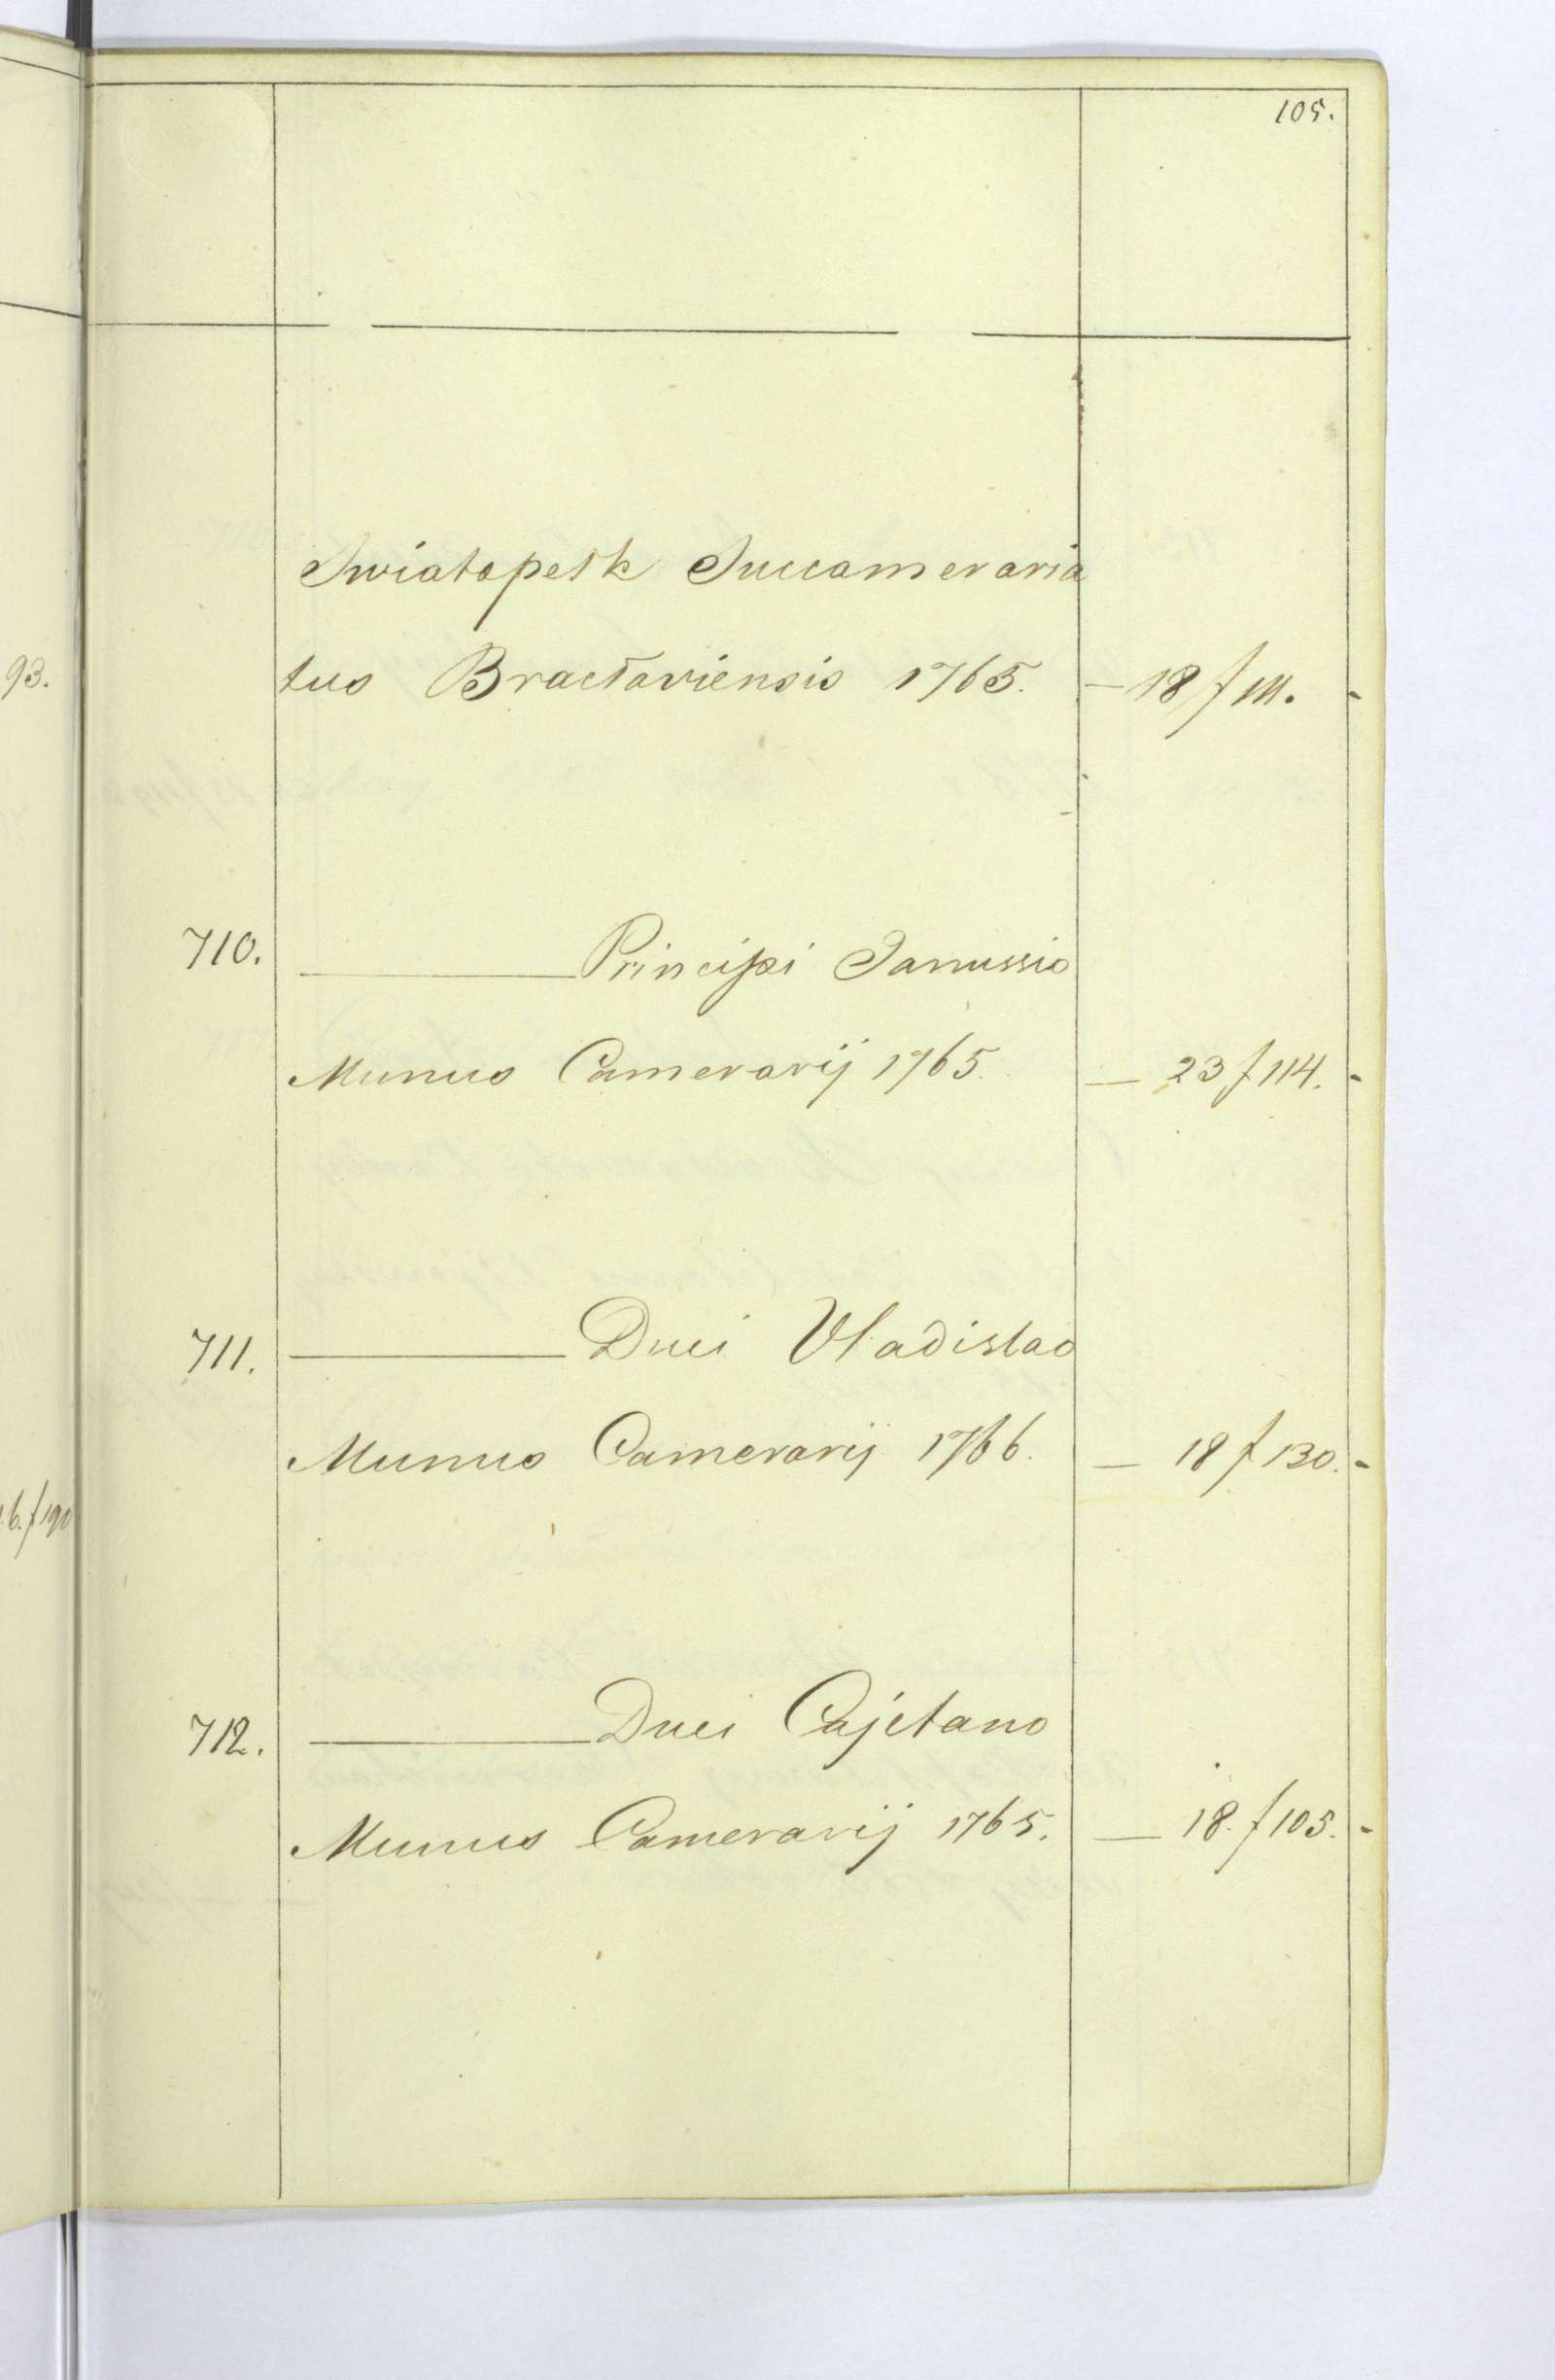 105.
Swiatopełk Succameraria
tus Bracłaviensis 1765. — 18 f 111. -
93.
710. ——— Principi Janussio
Munus Camerarij 1765. — 23 f 114. -
711. ——— Duci Vladislao
Munus Camerarij 1766. — 18 f 130. -
6. f 190
712. ——— Duci Cajetano
Munus Camerarij 1765. — 18. f 105. -